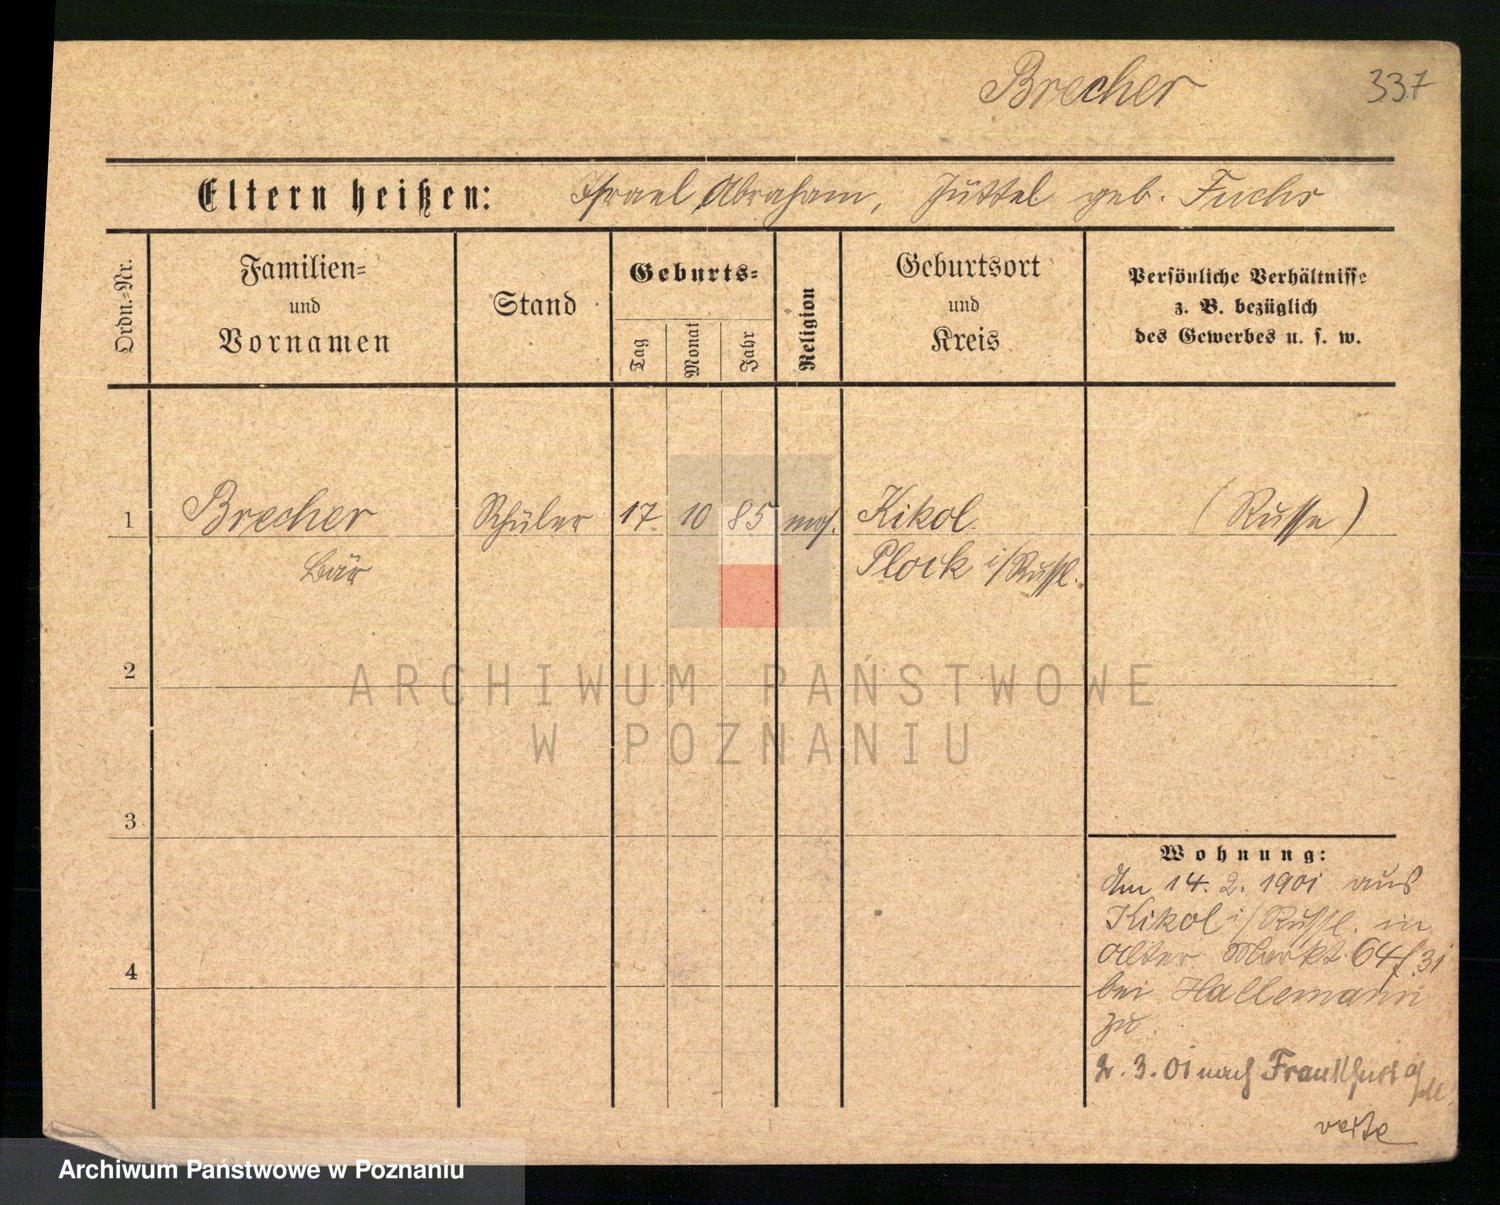 Brecher
337
Eltern heißen: Israel Abraham, Jüttel geb. Fuchs
Ordn.-Nr.
Familien-
und
Vornamen
Stand
Geburts-
Tag
Monat
Jahr
Religion
Geburtsort
und
Kreis
Persönliche Verhältnisse
z. B. bezüglich
des Gewerbes u. s. w.
1 Brecher Schüler 17 10 85 mos. Kikol (Russe)
Bär Plock i/Russl.
2
3
4
ARCHIWUM PAŃSTWOWE
W POZNANIU
Wohnung:
Am 14. 2. 1901 aus
Kikol i/Russl. in
Alter Markt 64
bei Hallemann
zu.
2. 3. 01 nach Frankfurt a/M.
verte
Archiwum Państwowe w Poznaniu